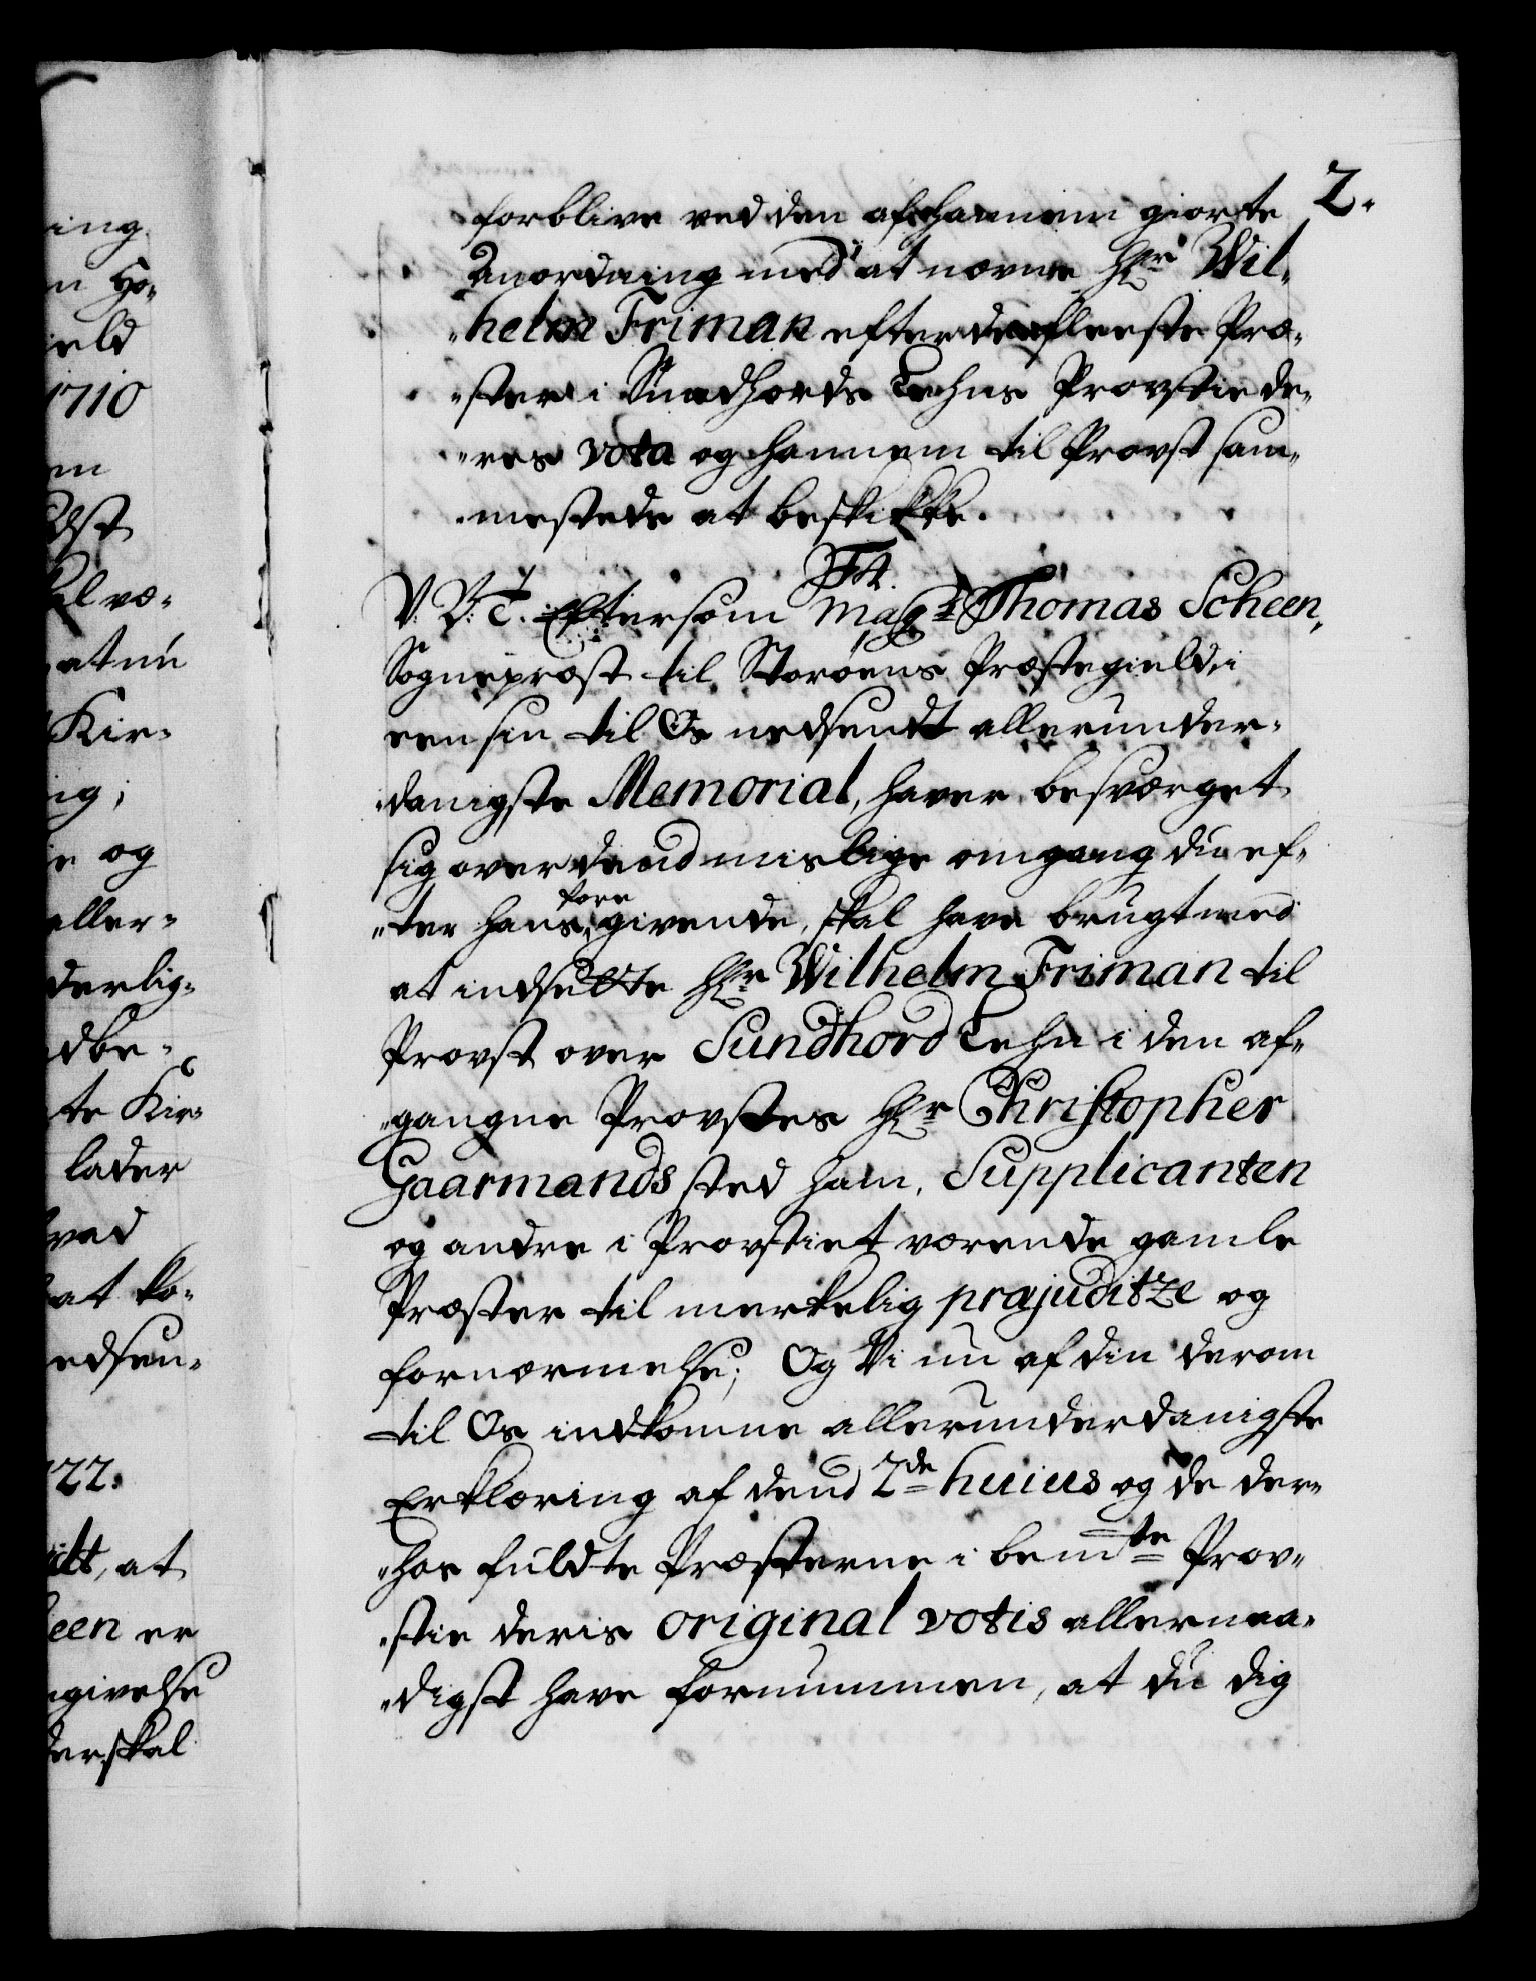 2.
forblive ved den af hannem giorte
Anordning med at nævne Hr Wil-
"helm Friman efter de fleeste Præ-
"ster i Sundhords Lehns Provstie de-
"res vota og hannem til Provst sam-
mestede at beskikke.
F4.
V. V. T. Eftersom Magr Thomas Scheen,
Sogneprest til Storöens Præstegield, i
een sin til Os nedsendt allerunder-
danigste Memorial, haver besværget
sig over dend mislige omgang du ef-
"ter hans foregivende, skal have brugt med
at indsette Hr Wilhelm Friman til
Provst over Sundhord Lehn i den af-
"gangne Provstes Hr Christopher
Gaarmands sted ham, Supplicanten
og andre i Provstiet værende gamle
Præster til merkelig præjuditze og
fornærmelse; Og Vi nu af din derom
til Os indkomne allerunderdanigste
Erklæring af dend 2de huius og de der-
"hos fuldte Præsterne i bemte Prov-
"stie deris original votis allernaa-
"digst have fornummen, at du dig
ing
n Ho-
ield
1710
en
dst
al væ-
at nu
Kir-
ng,
e og
aller-
derlig-
dbe-
te Kir-
lader
ved
at ko-
edsen-
722:
ilt, at
een er
givelse
der skal